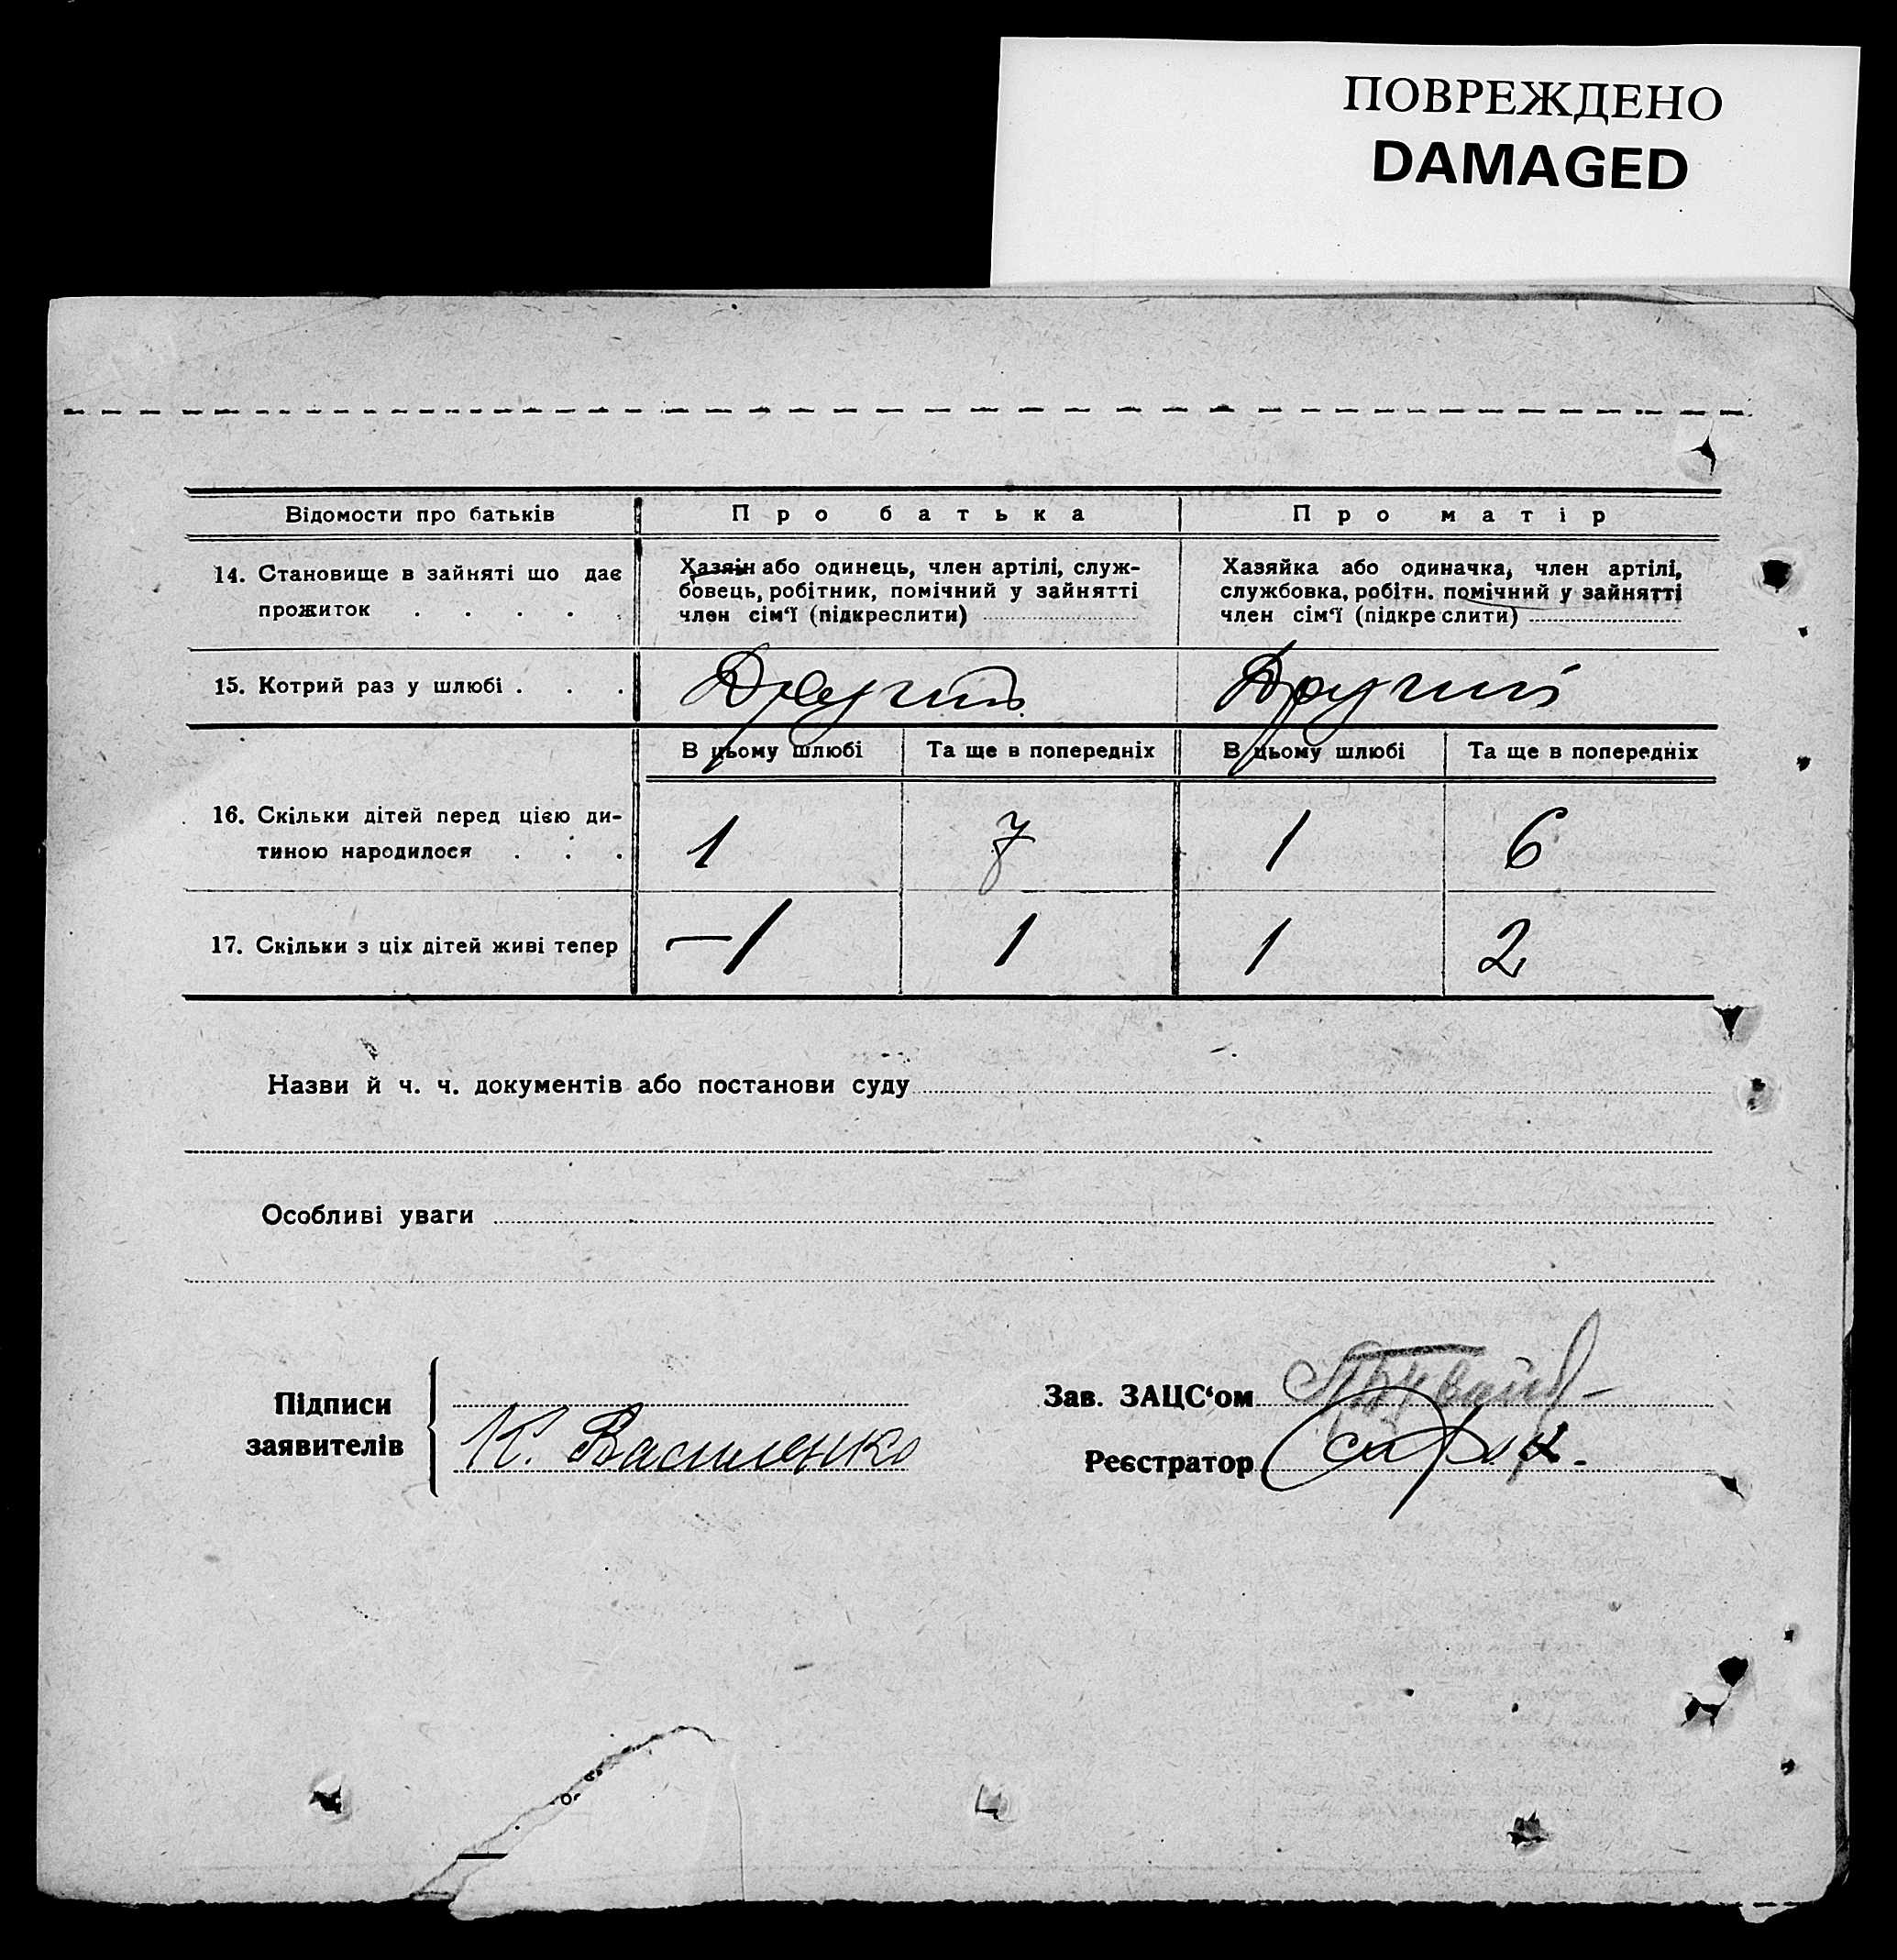 ПОВРЕЖДЕНО
DAMAGED
Відомости про батьків
Про батька
Про матір
14. Становище в зайняті що дає
прожиток . . . .
Хазяїн або одинець, член артілі, служ-
бовець, робітник, помічний у зайнятті
член сім'ї (підкреслити)
Хазяйка або одиначка, член артілі,
службовка, робітн. помічний у зайнятті
член сім'ї (підкреслити)
15. Котрий раз у шлюбі . . .
Другий
Другий
В цьому шлюбі
Та ще в попередніх
В цьому шлюбі
Та ще в попередніх
16. Скільки дітей перед цією ди-
тиною народилося . . .
1
7
1
6
17. Скільки з ціх дітей живі тепер
—1
1
1
2
Назви й ч. ч. документів або постанови суду
Особливі уваги
Підписи
заявителів
К. Василенко
Зав. ЗАЦС'ом
Реєстратор